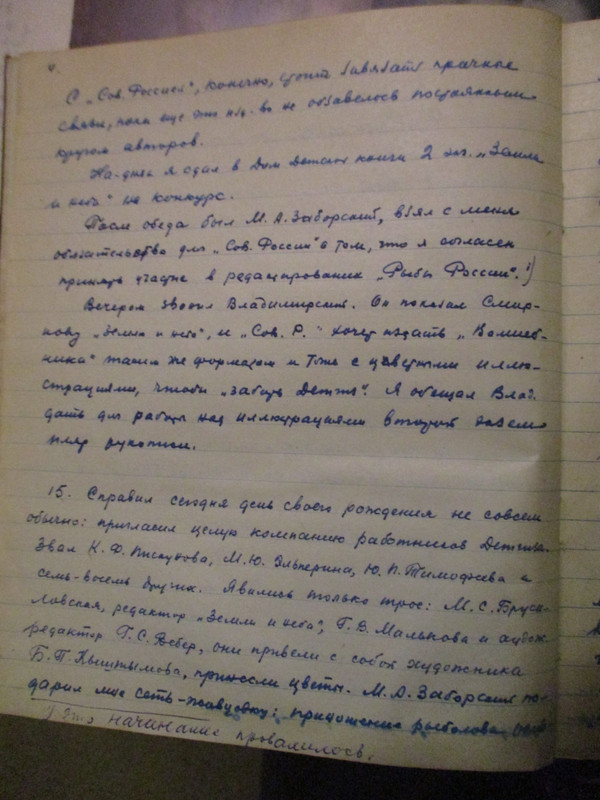 С „Сов. Россией", конечно, стоит завязать прочные
связи, пока еще это изд-во не обзавелось постоянным
кругом авторов.
На-днях я сдал в Дом Детской книги 2 экз. „Земля
и небо" на конкурс.
После обеда был М. А. Заборский, взял с меня
обязательство для „Сов. России" о том, что я согласен
принять участие в редактировании „Рыбы России". ¹)
Вечером звонил Владимирский. Он показал Смир-
нову „Земля и небо", и „Сов. Р." хочет издать „Волшеб-
ника" таким же форматом и тоже с цветными иллю-
страциями, чтобы „забить Детгиз". Я обещал Влад.
дать для работы над иллюстрациями второй экзем-
пляр рукописи.
15. Справил сегодня день своего рождения не совсем
обычно: пригласил целую компанию работников Детгиза.
Звал К. Ф. Пискунова, М. Ю. Эльперина, Ю. П. Тимофеева и
семь-восемь других. Явились только трое: М. С. Бруса-
ловская, редактор „Земли и неба", Г. В. Малькова и худож.
редактор Г. С. Вебер, они привели с собой художника
Б. П. Кыштымова, принесли цветы. М. А. Заборский по-
дарил мне сеть-живцовку: приношение рыболова
¹) Это начинание провалилось.